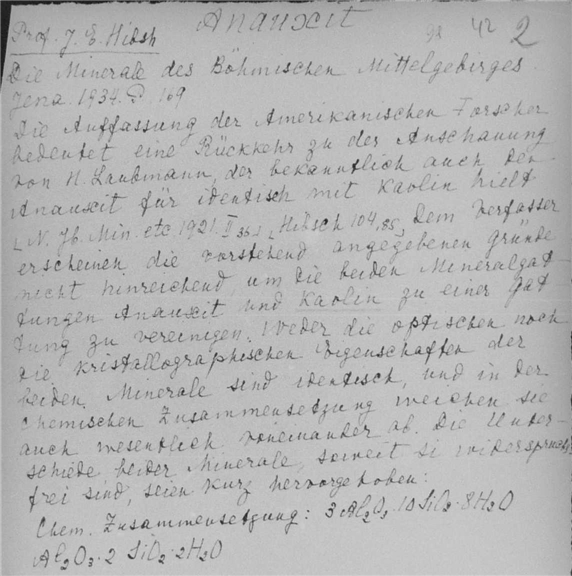 Anauxit
92 42 2
Prof. J. E. Hibsh
Die Minerale des Böhmischen Mittelgebirges
Jena. 1934. P. 169
Die Auffassung der Amerikanischen Forscher
bedeutet eine Rückkehr zu der Anschauung
von H. Laubmann, der bekanntlich auch den
Anauxit für identisch mit Kaolin hielt
N. Jb. Min. etc 1921. II Hibsch 104, Dem Verfasser
erscheinen die vorstehend angegebenen gründe
nicht hinreichend, um die beiden Mineralgat-
tungen Anauxit und Kaolin zu einer Gat
tung zu vereinigen. Weder die optischen noch
die kristallographischen Eigenschaften der
beiden Minerale sind identisch, und in der
chemischen Zusammensetzung weichen sie
auch wesentlich voneinander ab. Die Unter-
schiede beider Minerale, soweit si widerspruchs
frei sind, seien kurz hervorgehoben:
Chem. Zusammensetzung: 3Al₂O₃·10SiO₂·8H₂O
Al₂O₃·2 SiO₂·2H₂O